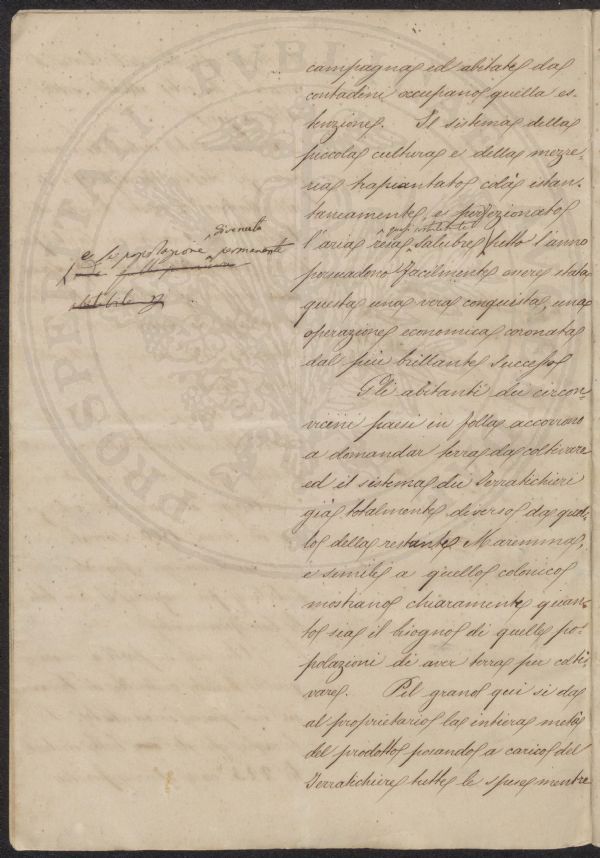 campagna ed abitate da
contadini occupano quella es-
tenzione. Il sistema della
piccola cultura e della mezze-
ria trapiantato colà istan-
taneamente, e perfezionato
l'aria resa salubre tutto l'anno
e la popolazione divenuta permanente
persuadono facilmente essere stata
questa una vera conquista, una
operazione economica coronata
dal più brillante successo
Gli abitanti dei circon-
vicini paesi in folla accorrono
a domandar terra da coltivare
ed il sistema dei Terratichieri
già totalmente diverso da quel-
lo della restante Maremma,
e simile a quello colonico
mostrano chiaramente quan-
to sia il biogno di quelle po-
polazioni di aver terra per colti-
vare. Pel grano qui si da
al proprietario la intiera metà
del prodotto posando a carico del
Terratichiere tutte le spese mentre
PVBLI
PROSPERITATI